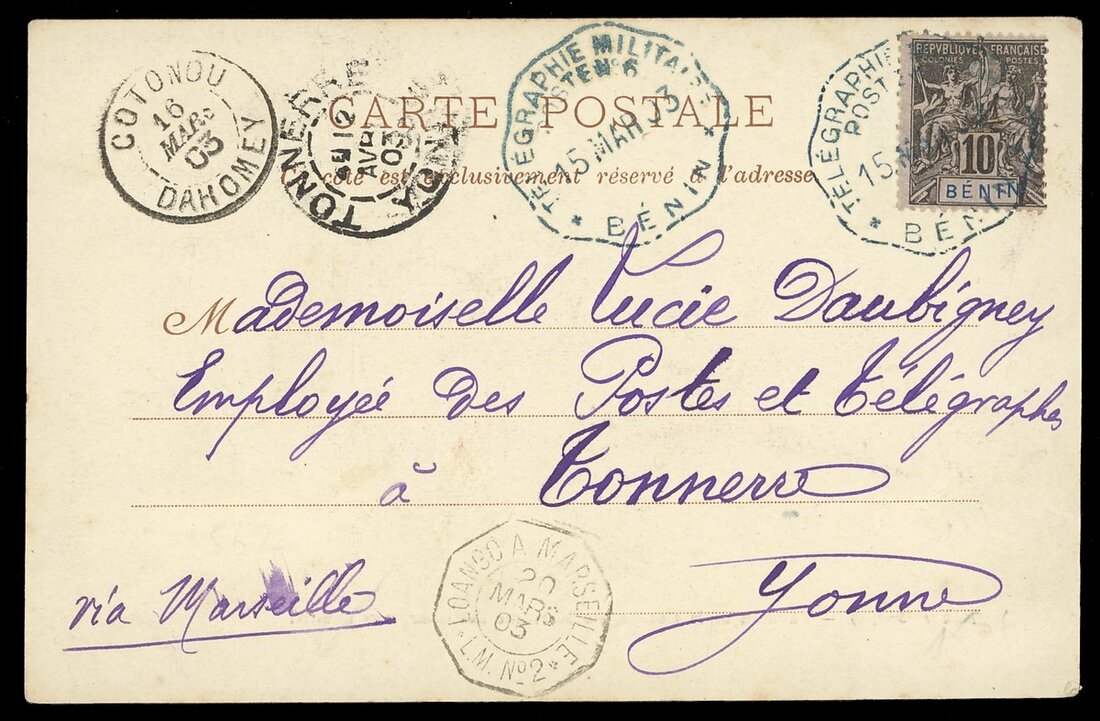 COTONOU
16
MARS
03
DAHOMEY
TONNERRE
12
AVR
03
YONNE
TÉLÉGRAPHIE MILITAIRE
POSTE Nº 6
15 MAR 03
* BÉNIN *
TÉLÉGRAPHIE
POST
15
* BÉNI
REPUBLIQUE FRANÇAISE
COLONIES POSTES
10
BÉNIN
CARTE POSTALE
côté est exclusivement réservé à l'adresse
Mademoiselle Lucie Daubigney
Employée des Postes et Télégraphes
à Tonnerre
Yonne
via Marseille
LOANGO A MARSEILLE
20
MARS
03
* L.M. Nº2 *